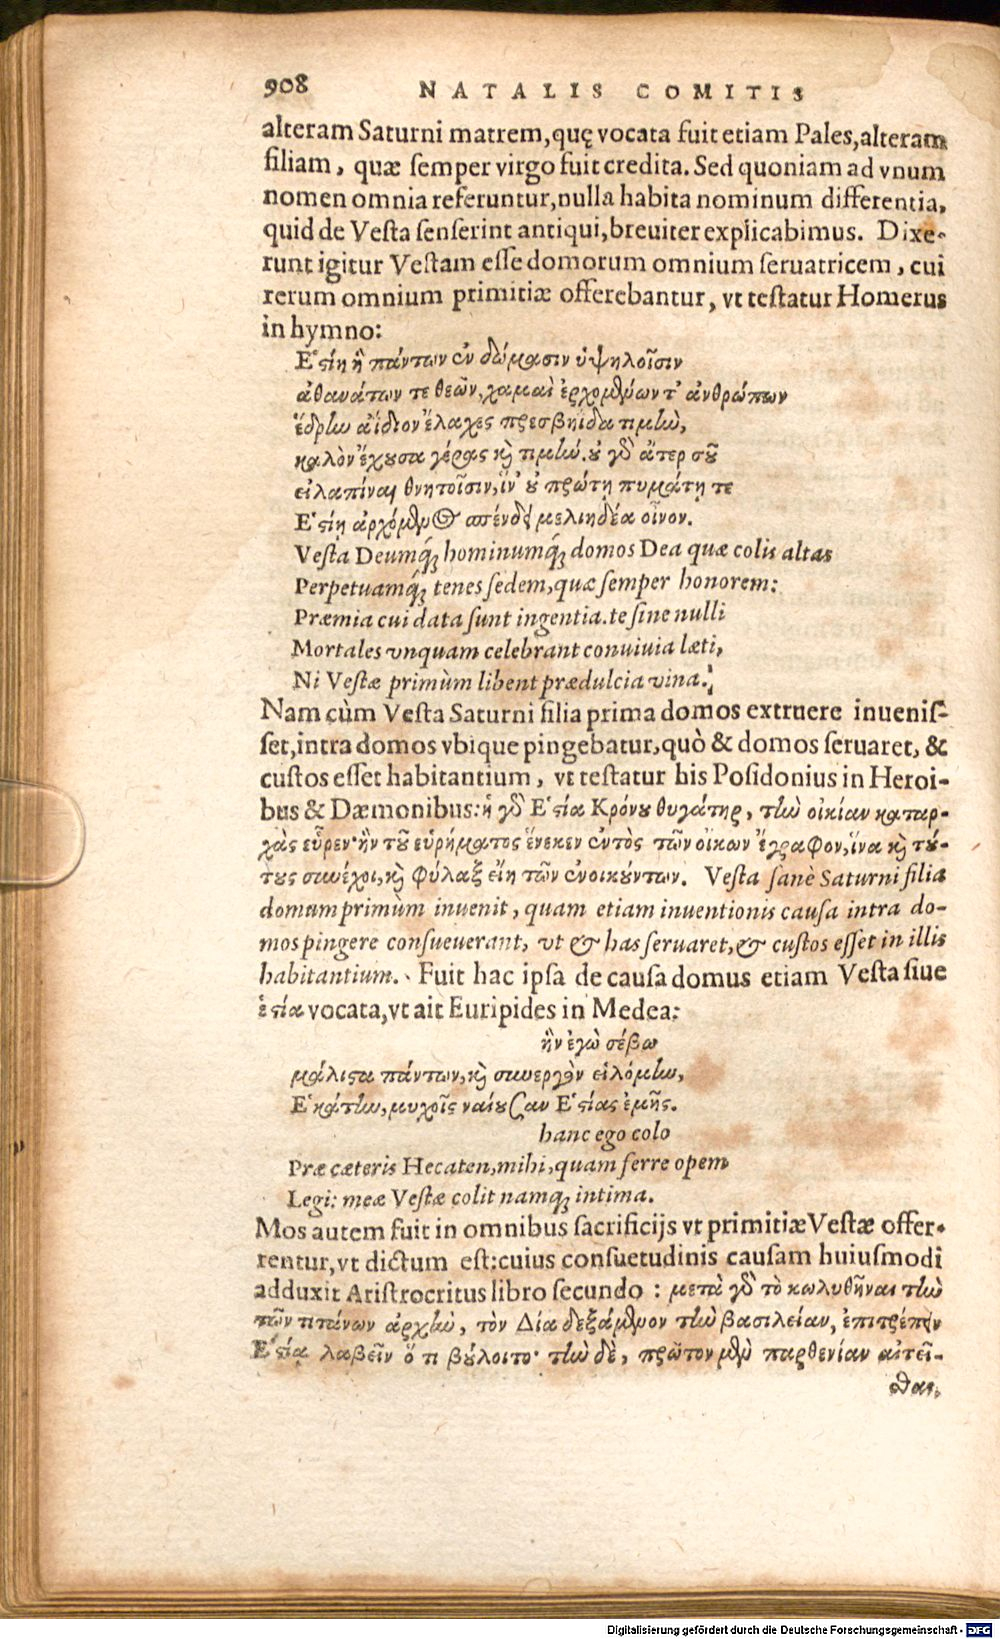 908 NATALIS COMITIS
alteram Saturni matrem, quę vocata fuit etiam Pales, alteram
filiam, quæ semper virgo fuit credita. Sed quoniam ad vnum
nomen omnia referuntur, nulla habita nominum differentia,
quid de Vesta senserint antiqui, breuiter explicabimus. Dixe-
runt igitur Vestam esse domorum omnium seruatricem, cui
rerum omnium primitiæ offerebantur, vt testatur Homerus
in hymno:
Ἑϛίη ἣ πάντων ἐν δώμασιν ὑψηλοῖσιν
ἀθανάτων τε θεῶν, χαμαὶ ἐρχομένων τ' ἀνθρώπων
ἕδρην ἀίδιον ἔλαχες πρεσβηίδα τιμὴν,
καλὸν ἔχουσα γέρας καὶ τιμήν. οὐ γὰρ ἄτερ σοῦ
εἰλαπίναι θνητοῖσιν, ἵν' οὐ πρώτῃ πυμάτῃ τε
Ἑϛίῃ ἀρχόμενος σπένδει μελιηδέα οἶνον.
Vesta Deumq́; hominumq́; domos Dea quæ colis altas
Perpetuamq́; tenes sedem, quæ semper honorem:
Præmia cui data sunt ingentia. te sine nulli
Mortales vnquam celebrant conuiuia læti,
Ni Vestæ primùm libent prædulcia vina.
Nam cùm Vesta Saturni filia prima domos extruere inuenis-
set, intra domos vbique pingebatur, quò & domos seruaret, &
custos esset habitantium, vt testatur his Posidonius in Heroi-
bus & Dæmonibus: ἡ γὰρ Ἑϛία Κρόνου θυγάτηρ, τὴν οἰκίαν καταρ-
χὰς εὗρεν· ἣν τοῦ εὑρήματος ἕνεκεν ἐντὸς τῶν οἴκων ἔγραφον, ἵνα καὶ τού-
τους συνέχοι, καὶ φύλαξ εἴη τῶν ἐνοικούντων. Vesta sanè Saturni filia
domum primùm inuenit, quam etiam inuentionis causa intra do-
mos pingere consueuerant, vt & has seruaret, & custos esset in illis
habitantium. Fuit hac ipsa de causa domus etiam Vesta siue
ἑϛία vocata, vt ait Euripides in Medea:
ἣν ἐγὼ σέβω
μάλιϛα πάντων, καὶ συνεργὸν εἱλόμην,
Ἑκάτην, μυχοῖς ναίουσαν Ἑϛίας ἐμῆς.
hanc ego colo
Præ cæteris Hecaten, mihi, quam ferre opem
Legi: meæ Vestæ colit namq; intima.
Mos autem fuit in omnibus sacrificijs vt primitiæ Vestæ offer-
rentur, vt dictum est: cuius consuetudinis causam huiusmodi
adduxit Aristrocritus libro secundo: μετὰ γὰρ τὸ κωλυθῆναι τὴν
τῶν τιτάνων ἀρχὴν, τὸν Δία δεξάμενον τὴν βασιλείαν, ἐπιτρέπειν
Ἑϛία λαβεῖν ὅ τι βούλοιτο· τὴν δὲ, πρῶτον μὲν παρθενίαν αἰτεῖ-
σθαι,
Digitalisierung gefördert durch die Deutsche Forschungsgemeinschaft - DFG